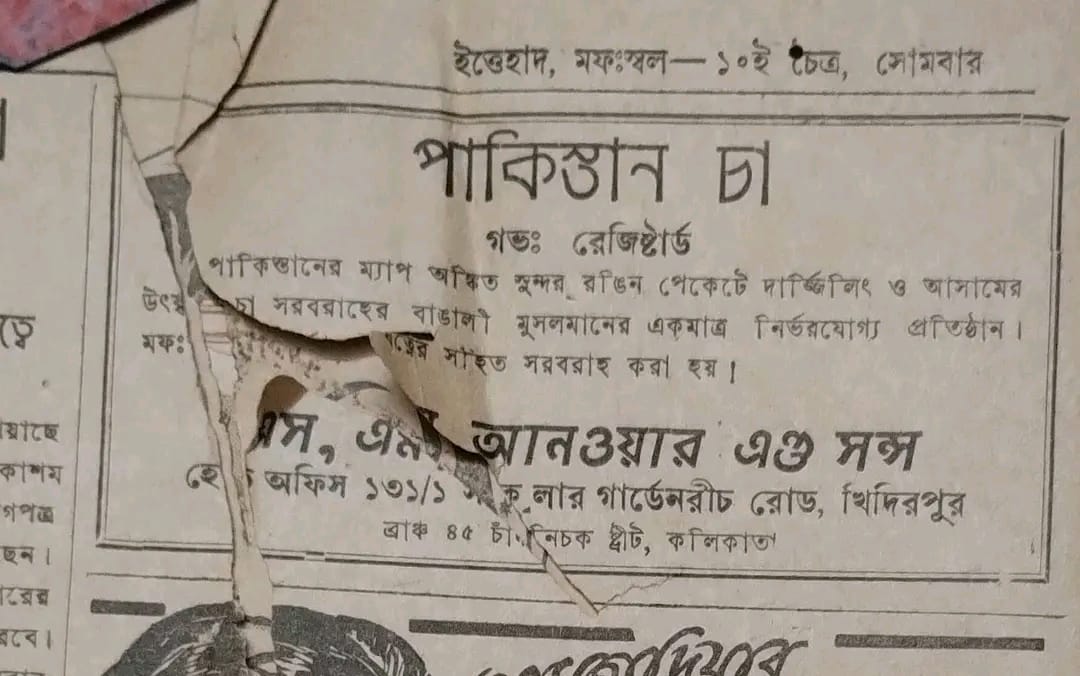 ইত্তেহাদ, মফঃস্বল— ১০ই চৈত্র, সোমবার
পাকিস্তান চা
গভঃ রেজিষ্টার্ড
পাকিস্তানের ম্যাপ অঙ্কিত সুন্দর রঙিন পেকেটে দার্জ্জিলিং ও আসামের
চা সরবরাহের বাঙালী মুসলমানের একমাত্র নির্ভরযোগ্য প্রতিষ্ঠান।
মফঃ সহিত সরবরাহ করা হয়।
এস, এম, আনওয়ার এণ্ড সন্স
অফিস ১৩১/১ গার্ডেনরীচ রোড, খিদিরপুর
ব্রাঞ্চ ৪৫ ষ্ট্রীট, কলিকাতা
ত্বে
য়াছে
কাশম
গপত্র
ছেন।
রবে।